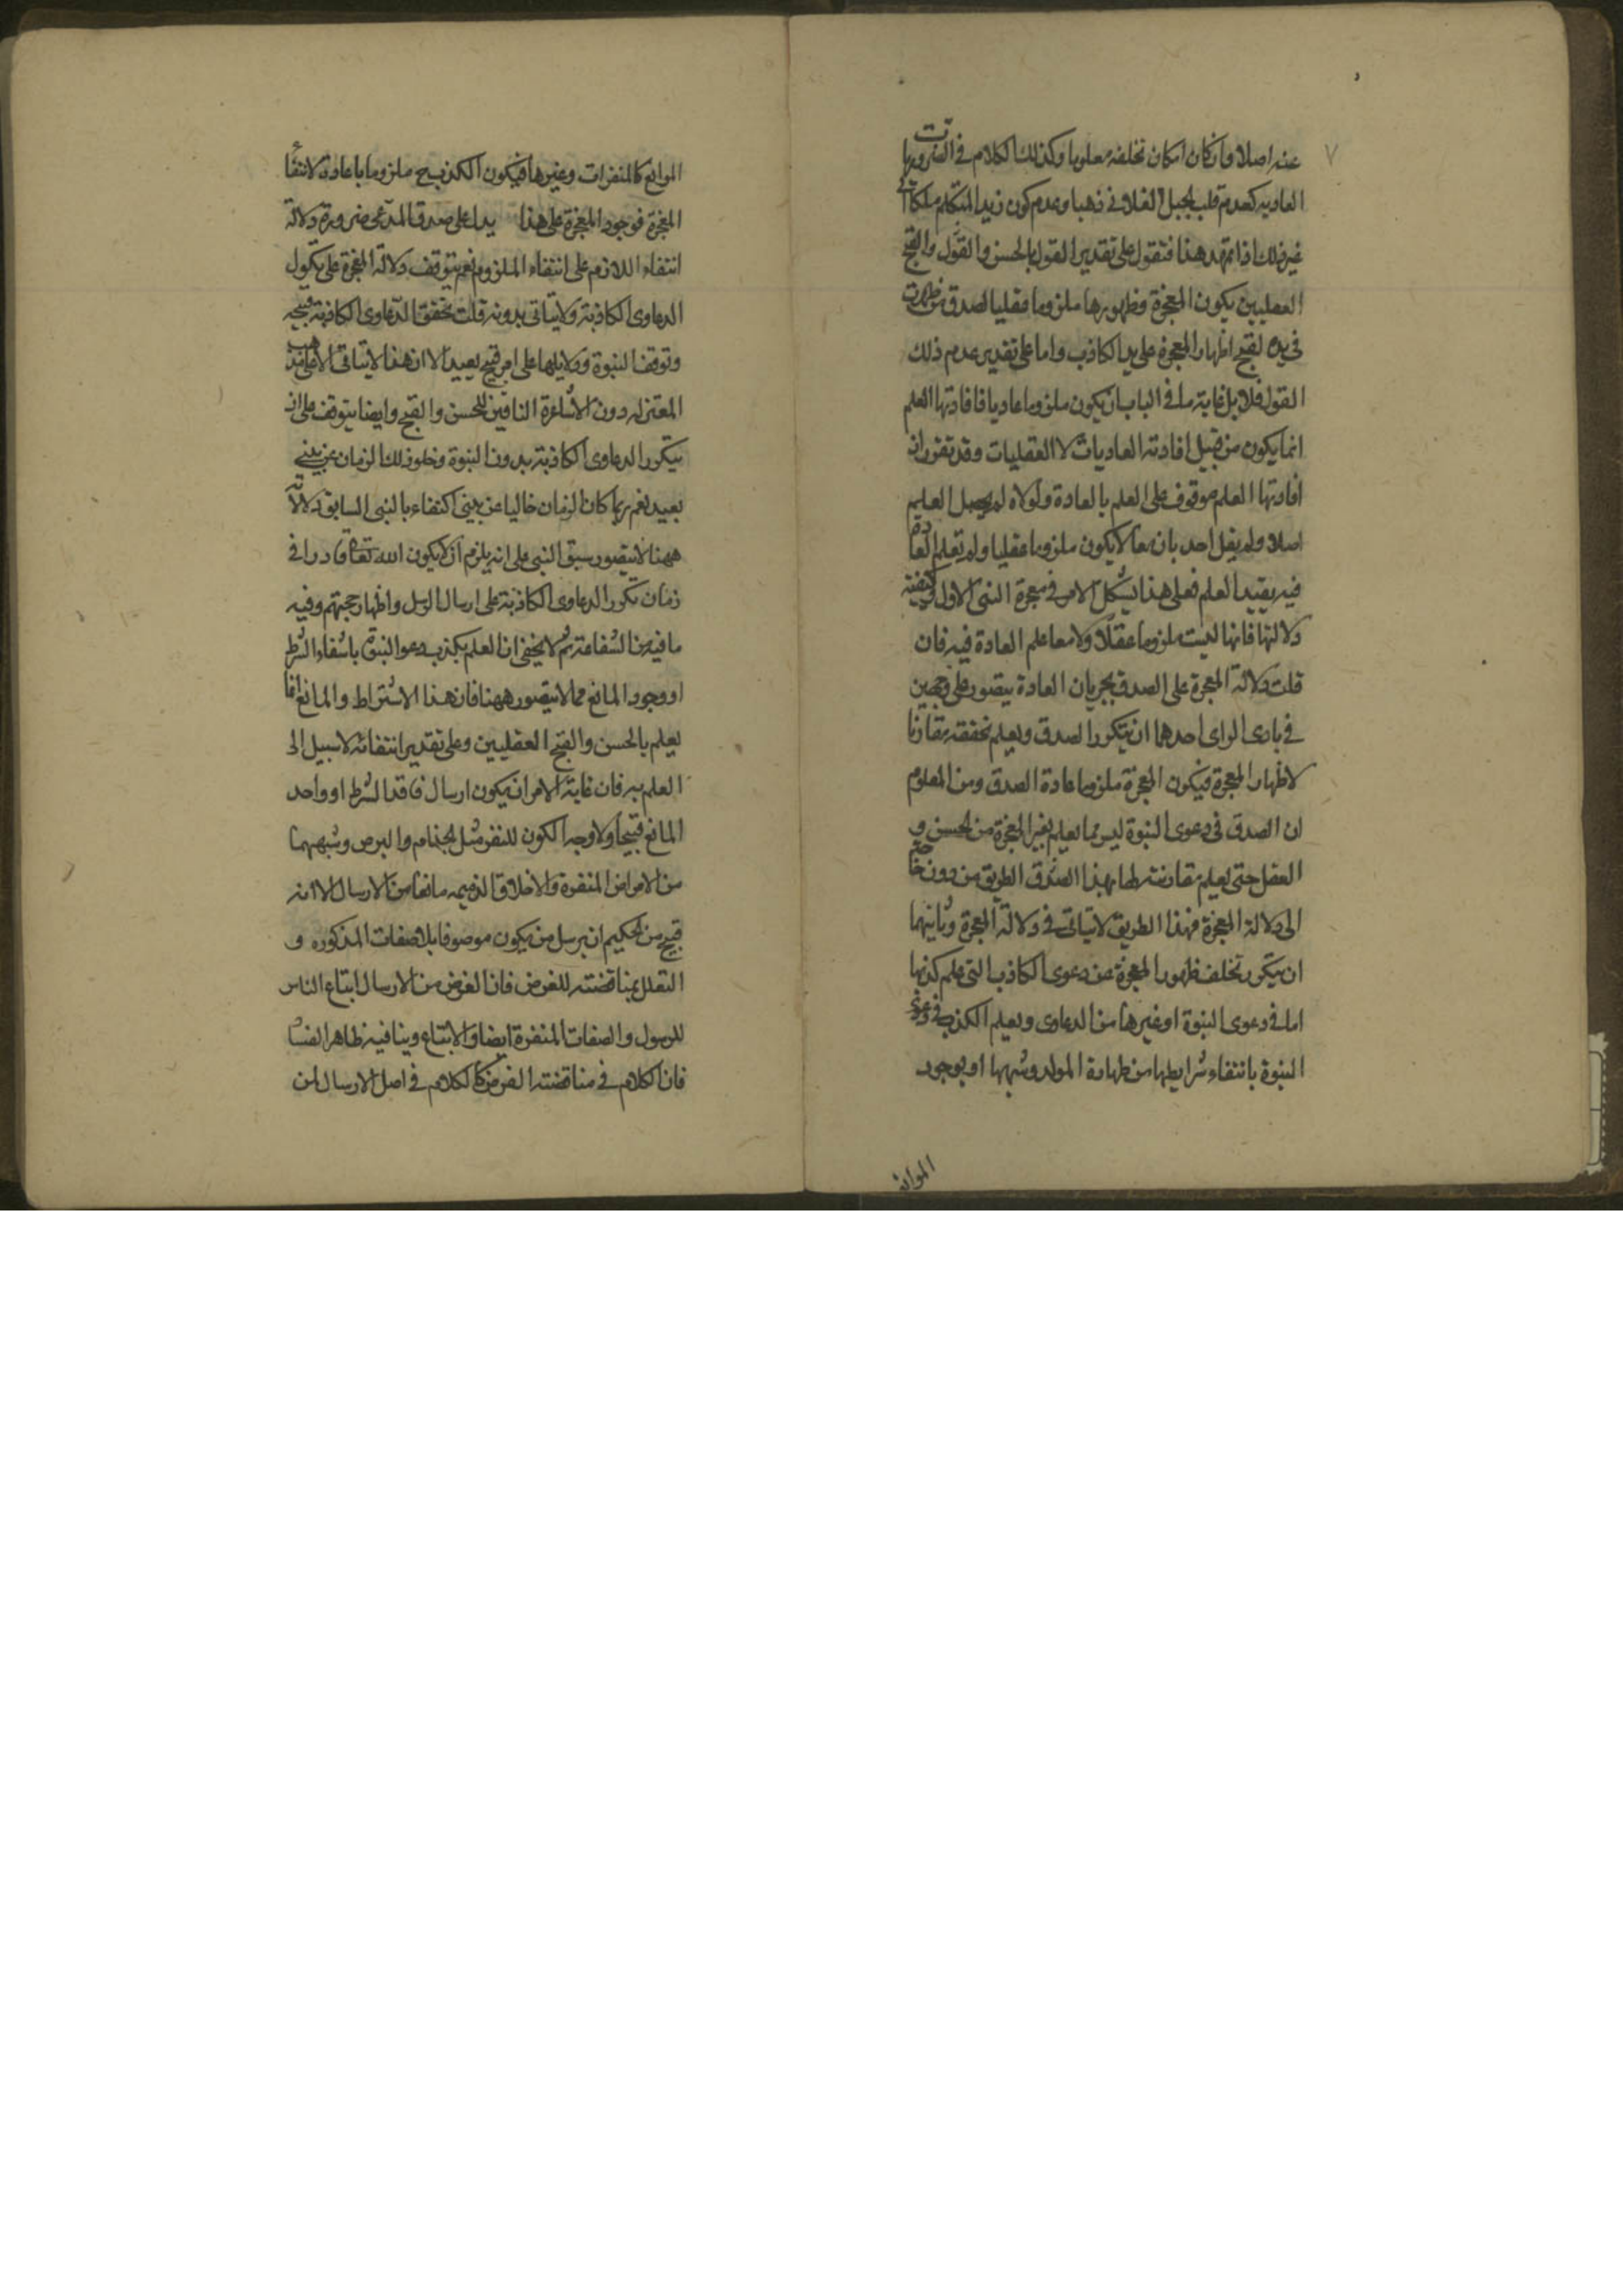 عنه اصلا وان كان امكان تخلفه معلوما وكذلك الكلام في الضروريات
العاديه كعدم قلب الجبل الفلاني ذهبا وعدم كون زيد المتكلم ملكا الى
غير ذلك اذا تمهد هذا فنقول على تقدير القول بالحسن والقول والقبح
العقليين يكون المعجزة وظهورها ملزوما عقليا لصدق من ظهرت
في يده لقبح اظهار المعجزة على يد الكاذب واما على تقدير عدم ذلك
القول فلا بل غاية ما في الباب ان يكون ملزوما عاديا فافادتها العلم
انما يكون من قبيل افادته العاديات لا العقليات وقد تقرر ان
افادتها العلم موقوف على العلم بالعادة ولولاه لم يحصل العلم
اصلا ولم يقل احد بان ما لا يكون ملزوما عقليا ولم تعلم العادة
فيه يفيد العلم فعلى هذا يشكل الامر في معجزة النبى الاول وكيفية
دلالتها فانها ليست ملزوما عقلا ولا مما علم العادة فيه فان
قلت دلالة المعجزة على الصدق بجريان العادة يتصور على وجهين
في بادى الراى احدهما ان يتكرر الصدق ويعلم تحققه مقارنا
لاظهار المعجزة فيكون المعجزة ملزوما عادة الصدق ومن المعلوم
ان الصدق في دعوى النبوة ليس مما يعلم بغير المعجزة من الحسن و
العقل حتى يعلم مقارنته لها بهذا الصدق الطريق من دون حاجة
الى دلالة المعجزة فهذا الطريق لا يتاتى في دلالة المعجزة وثانيهما
ان يتكرر تخلف ظهور المعجزة عن دعوى الكاذب التى علم كذبها
اما في دعوى النبوة او غيرها من الدعاوى ويعلم الكذب في دعوى
النبوة بانتفاء شرايطها من طهارة المولد وشبهها او بوجود
الموانع
الموانع كالمنفرات وغيرها فيكون الكذب ح ملزوما باعادة لانتفاء
المعجزة فوجود المعجزة على هذا يدل على صدق المدعى ضرورة دلالة
انتفاء اللازم على انتفاء الملزوم نعم يتوقف دلالة المعجزة على تكرر
الدعاوى الكاذبة ولا يتاتى بدونه قلت تحقق الدعاوى الكاذبة قبيحه
وتوقف النبوة ودلايلها على امر قبيح بعيد الا ان هذا لا يتاتى الا على مذهب
المعتزله دون الاشاعرة النافين للحسن والقبح وايضا يتوقف على ان
يتكرر الدعاوى الكاذبة بدون النبوة وخلو ذلك الزمان عن نبى
بعيد نعم ربما كان الزمان خاليا عن نبى اكتفاء بالنبى السابق الا انه
ههنا لا يتصور سبق النبى على انه يلزم ان لا يكون الله تعالى قادرا في
زمان تكرر الدعاوى الكاذبة على ارسال الرسل واظهار حجتهم وفيه
ما فيه من الشناعة ثم لا يخفى ان العلم بكذب دعوا النبوة بانتفاء الشرط
او وجود المانع مما لا يتصور ههنا فان هذا الاشتراط والمانع انما
يعلم بالحسن والقبح العقليين وعلى تقدير انتفائه لا سبيل الى
العلم به فان غاية الامر ان يكون ارسال فاقد الشرط او واجد
المانع قبيحا ولا وجه الكون للنفر مثل الجذام والبرص وشبههما
من الامراض المنفرة والاخلاق الذميمه مانعا من الارسال الا انه
قبيح من الحكيم ان يرسل من يكون موصوفا بالاصفات المذكوره و
التعلل بمناقضته للغرض فان الغرض من الارسال اتباع الناس
للرسول والصفات المنفرة ايضا والاتباع وينافيه ظاهر الفساد
فان الكلام في مناقضته الغرض كالكلام في اصل الارسال لمن